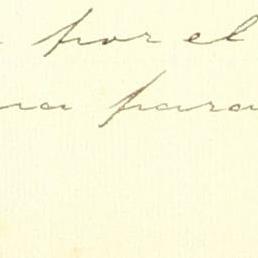 por el
na para